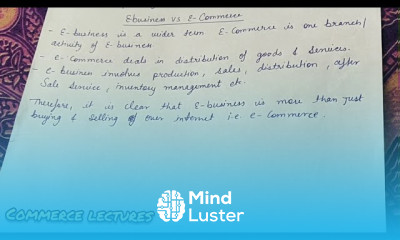 Ebusiness vs E-Commerce
- E-business is a wider term E-Commerce is one branch/
activity of E-business
- E-Commerce deals in distribution of goods & services.
- E-business involves production, sales, distribution, after
Sale service, inventory management etc.
Therefore, it is clear that E-business is more than just
buying & selling of over internet i.e. e-commerce.
Mind
Luster
COMMERCE LECTURES